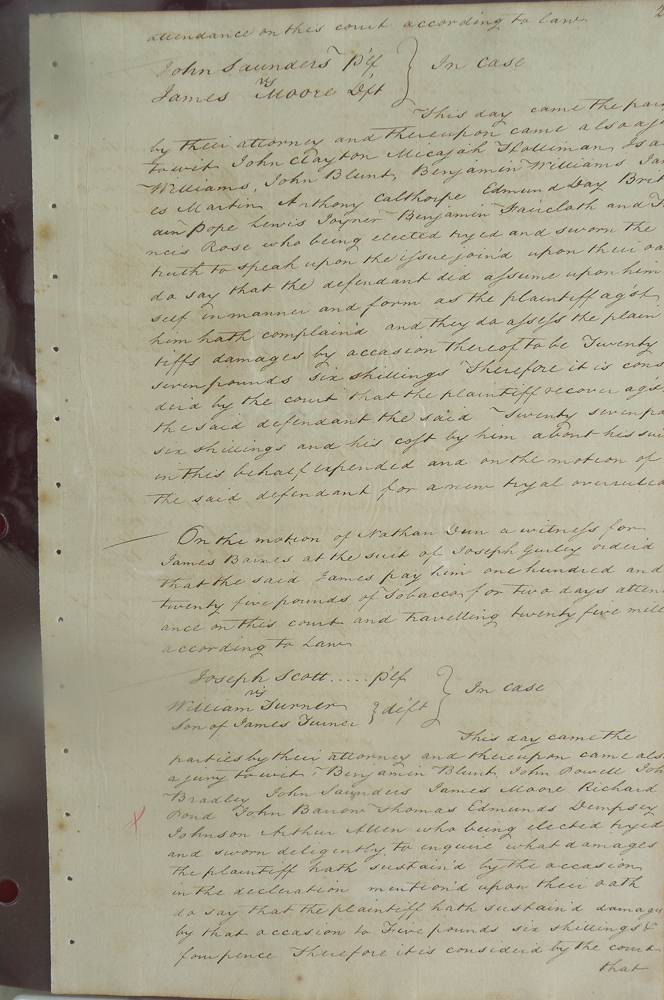 attendance on this court according to law
John Saunders p'lf
vs
James Moore Def't
In case
This day came the par
by their attorney and thereupon came also a ju
to wit John Clayton Micajah Holliman
Williams, John Blunt, Benjamin Williams Ja
es Martin Anthony Calthorpe Edmund Day Brit
ain Pope Lewis Joyner Benjamin Faircloth and F
ncis Rose who being elected tryed and sworn the
truth to speak upon the issue join'd upon their oa
do say that the defendant did assume upon him
self in manner and form as the plaintiff ag'st
him hath complain'd and they do assess the plain
tiffs damages by occasion thereof to be Twenty
seven pounds six shillings Therefore it is cons
der'd by the court that the plaintiff recover ag's
the said defendant the said Twenty seven po
six shillings and his cost by him about his sui
in this behalf expended and on the motion of
the said defendant for a new tryal overruled
On the motion of Nathan Dun a witness for
James Barnes at the suit of Joseph Gurley order'd
that the said James pay him one hundred and
twenty five pounds of Tobacco for two days atten
ance on this court and travelling twenty five mile
according to Law
Joseph Scott ..... p'lf
vs
William Turner
Son of James Turner
def't
In case
This day came the
parties by their attorney and thereupon came als
a jury to wit Benjamin Blunt, John Powell Joh
Bradley John Saunders James Moore Richard
Pond John Barrow Thomas Edmunds Dempsey
Johnson Arthur Allen who being elected tryed
and sworn deligently to inquire what damages
the plaintiff hath sustain'd by the occasion
in the decleration mention'd upon their oath
do say that the plaintiff hath sustain'd damages
by that occasion to Five pounds six shillings &
four pence Therefore it is consider'd by the court
that